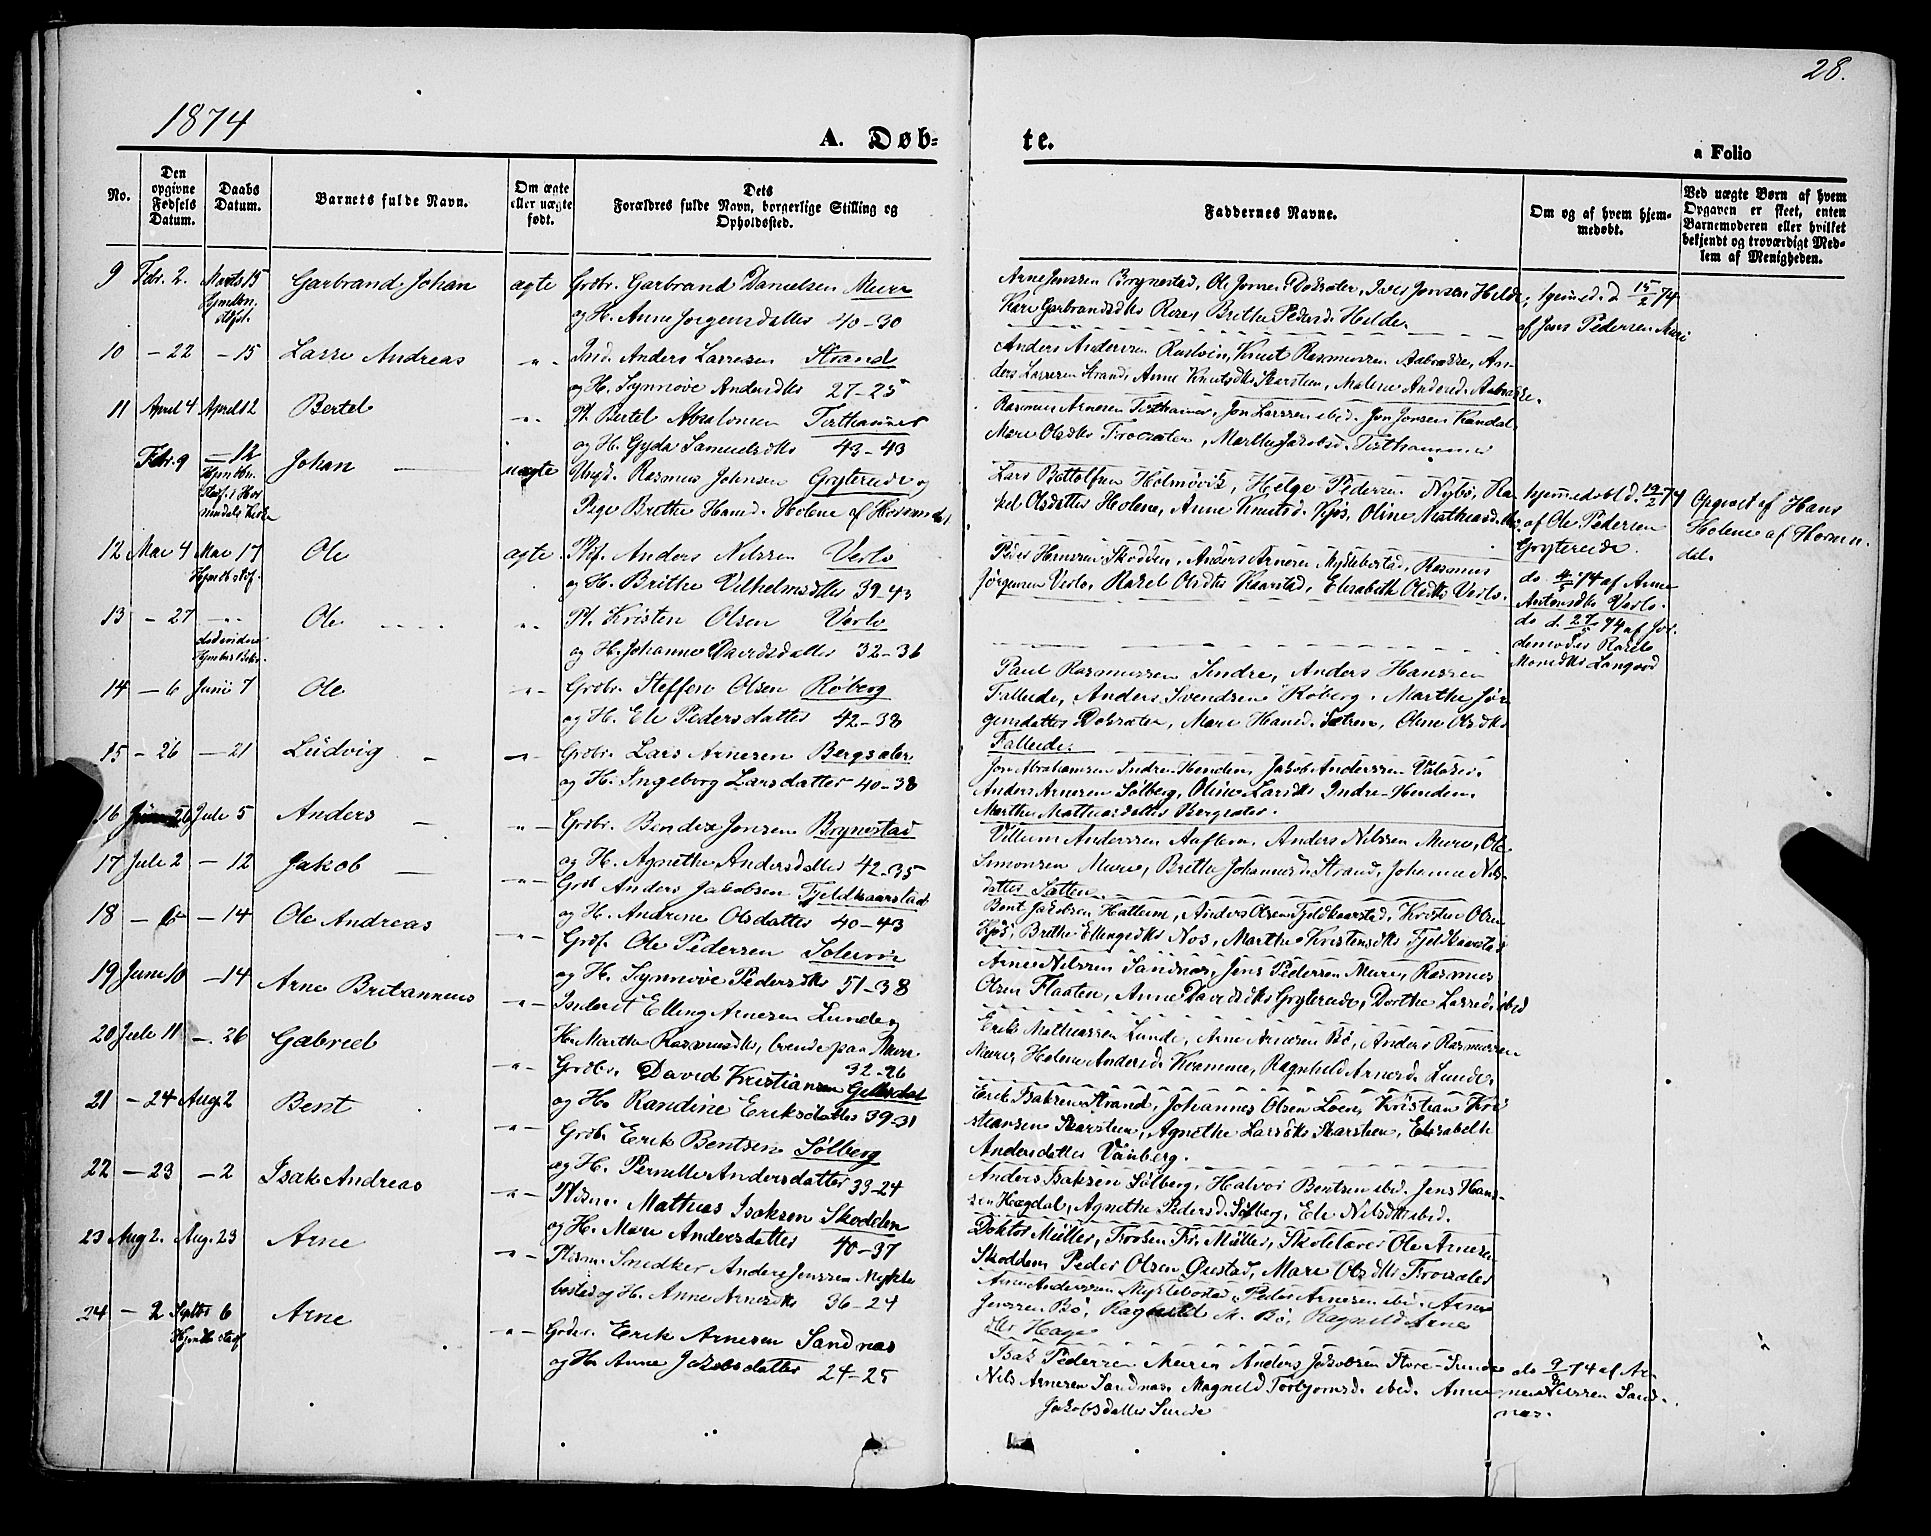 28.
1874
A. Døb-
te.
a Folio
No.
Den opgivne Fødsels Datum.
Daabs Datum.
Barnets fulde Navn.
Om ægte eller uægte født.
Dets
Forældres fulde Navn, borgerlige Stilling og Opholdssted.
Faddernes Navne.
Om og af hvem hjemmedøbt.
Ved uægte Børn af hvem Opgaven er skeet, enten Barnemoderen eller hvilket bekjendt og troværdigt Medlem af Menigheden.
9 Febr. 2. Marts 15 Garbrand Johan ægte Grdbr. Garbrand Danielsen Mure
og H. Anne Jørgensdatter 40-30
Arne Jonssen Brynestad, Ole
af Jens Pedersen Muri
10 - 22 - 15 Lasse Andreas -"- Ind. Anders Lassesen Strand
og H. Synnøve Andersdtr 27-25
Anders Anderssen Rusten, Knut Rasmussen Aabrække, An-
ders Lassesen Strand, Anne Knutsdtr Skarsten, Malene Andersd. Aabrække.
11 April 4 April 12 Bertel -"- Pl. Bertel Absalonsen Tisthammer
og H. Gyda Samuelsdtr 43-43
Rasmus Arnesen Tisthammer, Jon Larssen ibid. Jon Jonsen Kandal
Febr. 9 - 12 Johan uægte Ungk. Rasmus Johnsen Gryterude og
Pige Brithe Hansd. Holene af Hornindal
Lars Bottolfsen Holmøvik, Helge Pedersen Nybø, Ra-
kel Olsdatter Holene, Anne Knutsd. Kjøs, Oline Mathiasdtr
hjemmedøbt d. 12/2 74
af Ole Pedersen
Gryterude.
Opgivet af Hans
Holene af Hornin-
dal.
12 Mai 4 Mai 17 Ole ægte Plf. Anders Nilssen Verlo
og H. Brithe Vilhelmsdtr 39-43
Peder Hanssen Skodden, Anders Arnesen Myklebostad, Rasmus
Jørgensen Verlo, Rakel Olsdtr Kaarstad, Elisabeth Olsdtr Verlo.
do 4/5 74 af Anne
Verlo.
13 - 27 -"- Ole -"- Pl. Kristen Olsen Verlo
og H. Johanne Davidsdatter 32-36
do d. 27/5 74 af Jor-
demoder Rakel
Langvod
14 - 6 Junii 7 Ole -"- Grdbr. Steffen Olsen Røberg
og H. Eli Pedersdatter 42-38
Paul Rasmussen Sindre, Anders Hanssen
Falleide, Anders Svendsen Røberg, Marthe Jør-
gensdatter Dokseter, Mari Hansd. Sætren, Oline Olsdtr
Falleide.
15 - 26 - 21 Ludvig -"- Grdbr. Lars Arnesen Bergsaker
og H. Ingeborg Larsdatter 40-38
Jon Abrahamsen Indre-Henden, Jakob Anderssen Valaker,
Anders Arnesen Sølberg, Oline Larsdtr Indre-Henden,
Marthe Matheusdatter Bergsaker.
16 Juni 26 Juli 5 Anders -"- Grdbr. Bendix Jonsen Brynestad
og H. Agnethe Andersdatter 42-35
Villum Anderssen Aaflem, Anders Nilssen Mure, Ole
Simonsen Mure, Brithe Johannesd. Strand, Johanne Nils-
datter Sætten
17 Juli 2 - 12 Jakob -"- Grdb Anders Jakobsen Fjeldkaarstad
og H. Andrine Olsdatter 40-43
Bent Jakobsen Hatlem, Anders Olsen Fjeldkaarstad, Kristen Olsen
Kjøs, Brithe Ellingsdtr Nos, Marthe Kristensdtr Fjeldkaarstad
18 - 14 Ole Andreas -"- Grdf. Ole Pedersen Soleim
og H. Synnøve Pedersdtr 51-38
Arne Nilssen Sandnæs, Jens Pedersen Mure, Rasmus
Olsen Flaaten, Anne Davidsdtr Gryterude, Dorthe Lassed. ibid
19 Juni 10 - 14 Arne Britannius -"- Inderst Elling Arnesen Lunde og
H. Marthe Rasmusdtr, boende paa Mure
32-26
Erik Mathiassen Lunde, Arne Arnesen Bø, Anders Rasmussen
Mure, Helene Andersd. Kvamme, Ragnhild Arnesd. Lunde.
20 Juli 11 - 26 Gabriel -"- Grdbr. David Kristiansen
og H. Randine Eriksdatter 39-31
Erik Isaksen Strand, Johannes Olsen Loen, Kristian Kri-
stiansen Skarsten, Agnethe Larsdtr Skarsten, Elisabeth
Andersdatter Vinberg.
21 - 24 Aug. 2 Bent -"- Grdbr. Erik Bentsen Sølberg
og H. Pernille Andersdatter 33-24
Anders Isaksen Sølberg, Halvor Bentsen ibid. Jens Hans-
sen Hægdal, Agnethe Pedersd. Sølberg, Eli Nilsdtr ibid.
22 - 23 - 2 Isak Andreas -"- Plsm. Mathias Isaksen Skodden
og H. Mari Andersdatter 40-37
Doktor Müller, Fru Müller, Skolelærer Ole Arnesen
Skodden, Peder Olsen Øvstad, Mari Olsdtr
23 Aug 2. Aug. 23 Arne -"- Plsm. Snedker Anders Jonssen Mykle-
bostad og H. Anne Arnesdtr 36-24
Arne Anderssen Myklebostad, Peder Arnesen ibid. Arne
Jenssen Bø, Ragnhild A. Bø, Ragnhild Arnes-
dtr Hage
24 - 2 Septbr 6 Arne -"- Grdbr. Erik Arnesen Sandnæs
og H. Anne Jakobsdatter 24-25
Isak Pedersen Muren Anders Jakobsen Store-Sunde
Nils Arnesen Sandnæs, Magnild Torbjørnsd. ibid. Anne
Jakobsdatter Sunde
do 9/8 74 af Ar-
ne Nilssen Sand-
næs.